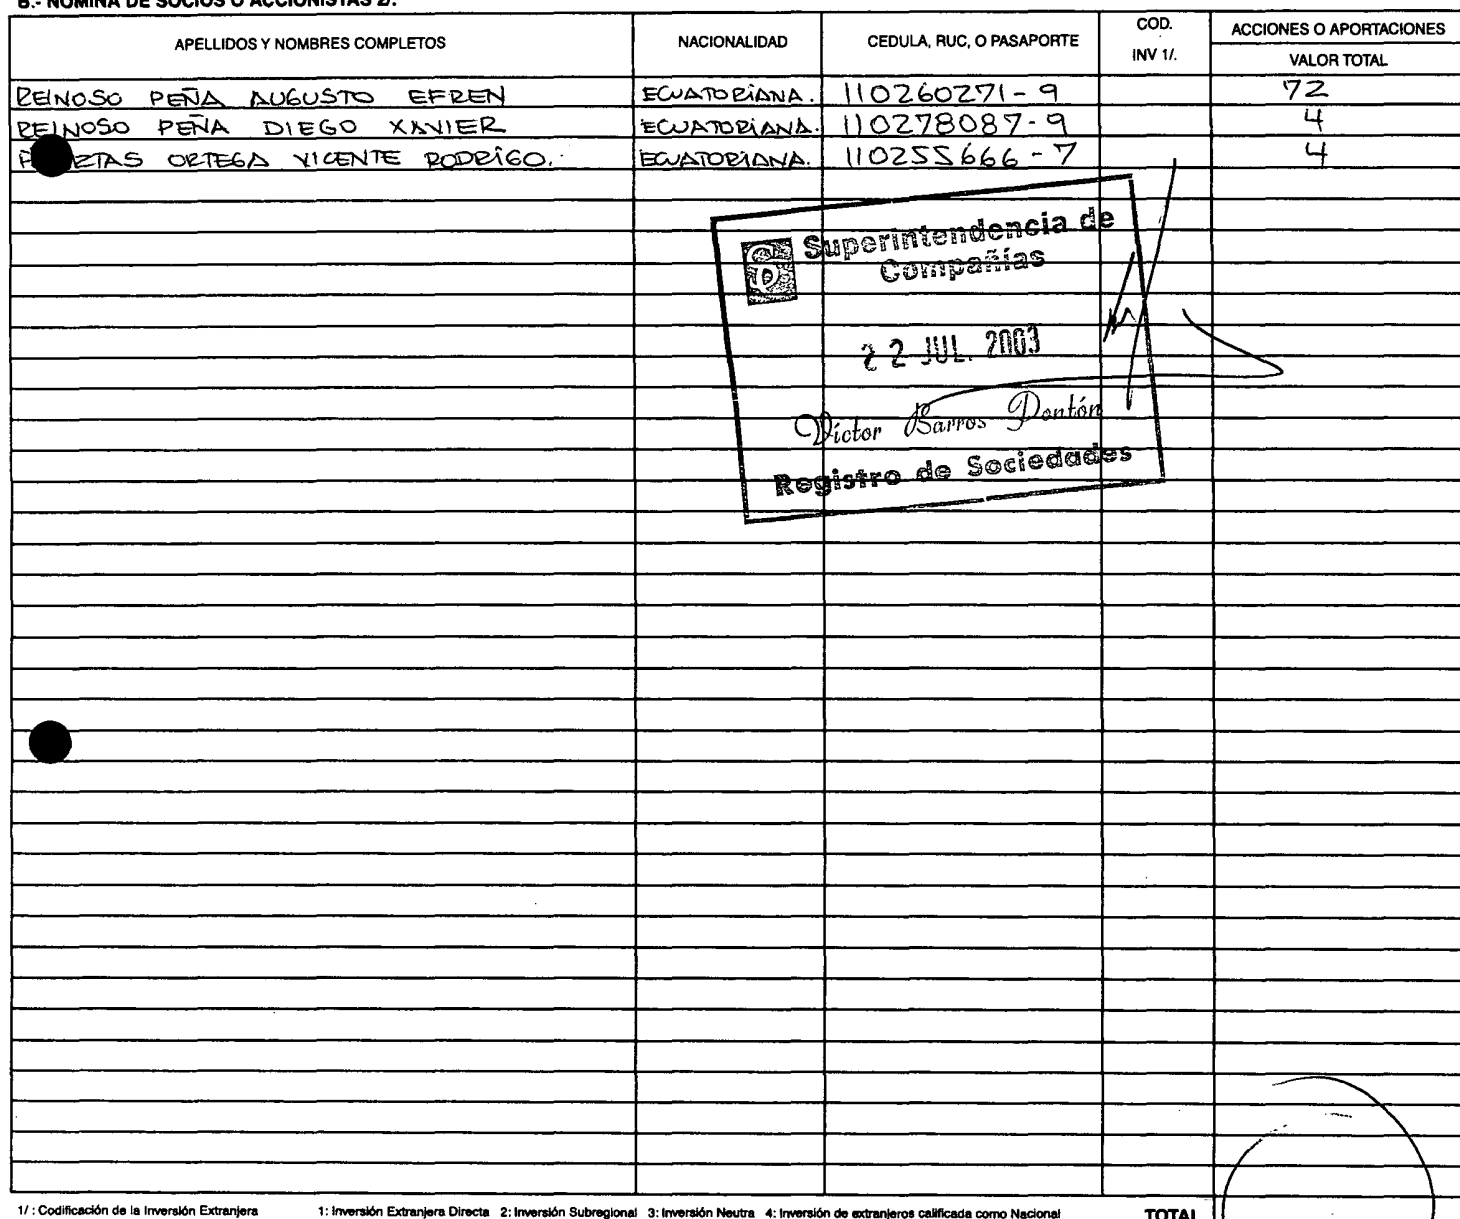 B.- NOMINA DE SOCIOS O ACCIONISTAS 2/.
APELLIDOS Y NOMBRES COMPLETOS NACIONALIDAD CEDULA, RUC, O PASAPORTE COD. INV 1/. ACCIONES O APORTACIONES VALOR TOTAL
REINOSO PEÑA AUGUSTO EFREN ECUATORIANA. 110260271-9 72
REINOSO PEÑA DIEGO XAVIER ECUATORIANA. 110278087-9 4
ORTEGA VICENTE RODRIGO. ECUATORIANA. 110255666-7 4
Superintendencia de
Compañías
22 JUL. 2003
Victor Barros Pontón
Registro de Sociedades
1/ : Codificación de la Inversión Extranjera 1: Inversión Extranjera Directa 2: Inversión Subregional 3: Inversión Neutra 4: Inversión de extranjeros calificada como Nacional TOTAL